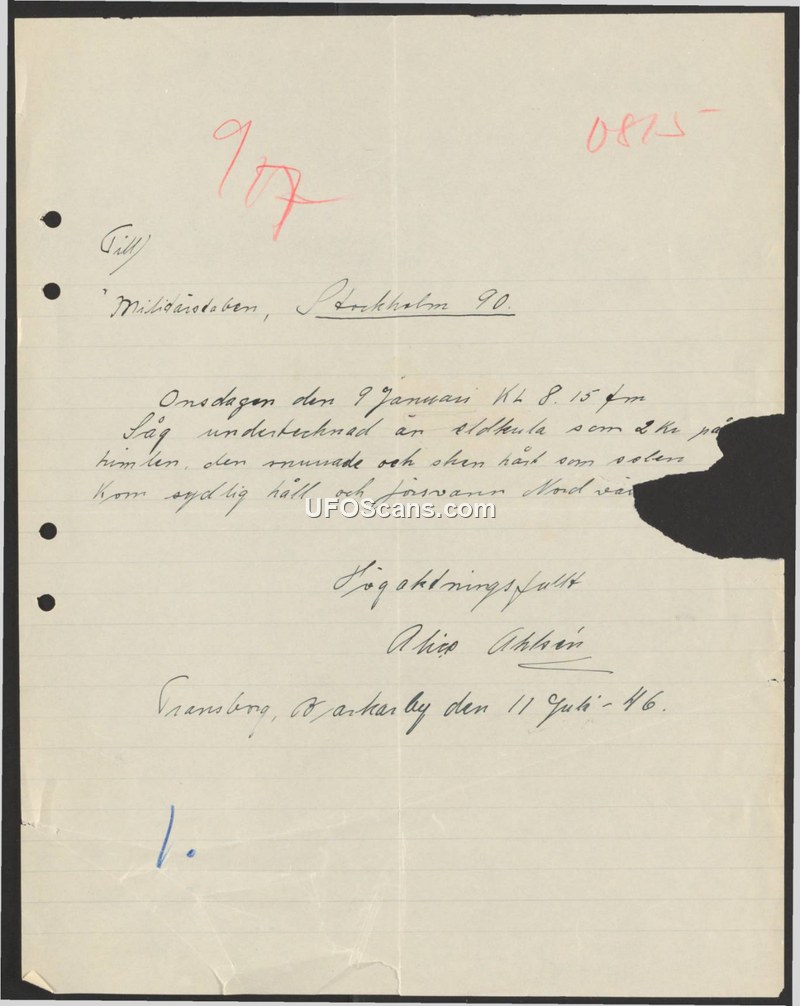 9/07
0815
Till)
Militärstaben, Stockholm 90.
Onsdagen den 9 Januari Kl 8.15 fm
Såg undertecknad än eldkula som 2 Kr på
himlen, den snurrade och sken hårt som solen
Kom sydlig håll och försvann Nord
UFOScans.com
Högaktningsfullt
Alice Ahlsén
Transborg, Barkarby den 11 Juli - 46.
1.